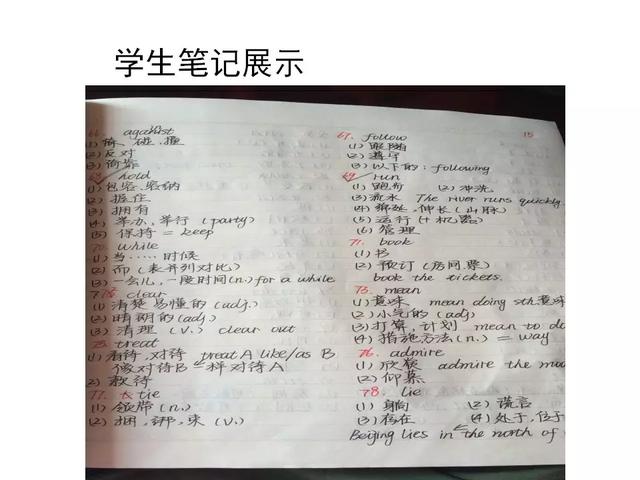 学生笔记展示
15
66. against
(1) 碰、撞
(2) 反对
(3) 倚靠
68. hold
(1) 包容、容纳
(2) 握住
(3) 拥有
(4) 举办、举行 (party)
(5) 保持 = keep
70. while
(1) 当……时候
(2) 而 (表并列对比)
(3) 一会儿, 一段时间(n.) for a while
clear
(1) 清楚易懂的 (adj.)
(2) 晴朗的(adj.)
(3) 清理 (v.) clear out
75. treat
(1) 看待, 对待 treat A like/as B
像对待B一样对待A
(2) 款待
77. tie
(1) 领带 (n.)
(2) 捆, 绑, 束 (v.)
67. follow
(1) 跟随
(2) 遵守
(3) 以下的: following
69. run
(1) 跑步 (2) 冲洗
(3) 流水 The river runs quickly.
(4) 伸长 (山脉)
(5) 运行 (+机器)
(6) 管理
71. book
(1) 书
(2) 预订 (房间票)
book the tickets.
73. mean
(1) 意味 mean doing sth. 意味
(2) 小气的 (adj)
(3) 打算, 计划 mean to do
(4) 措施方法(n.) = way
76. admire
(1) 欣赏 admire the moo
(2) 仰慕
78. lie
(1) 躺 (2) 谎言
(3) 存在 (4) 处于, 位于
Beijing lies in the north of